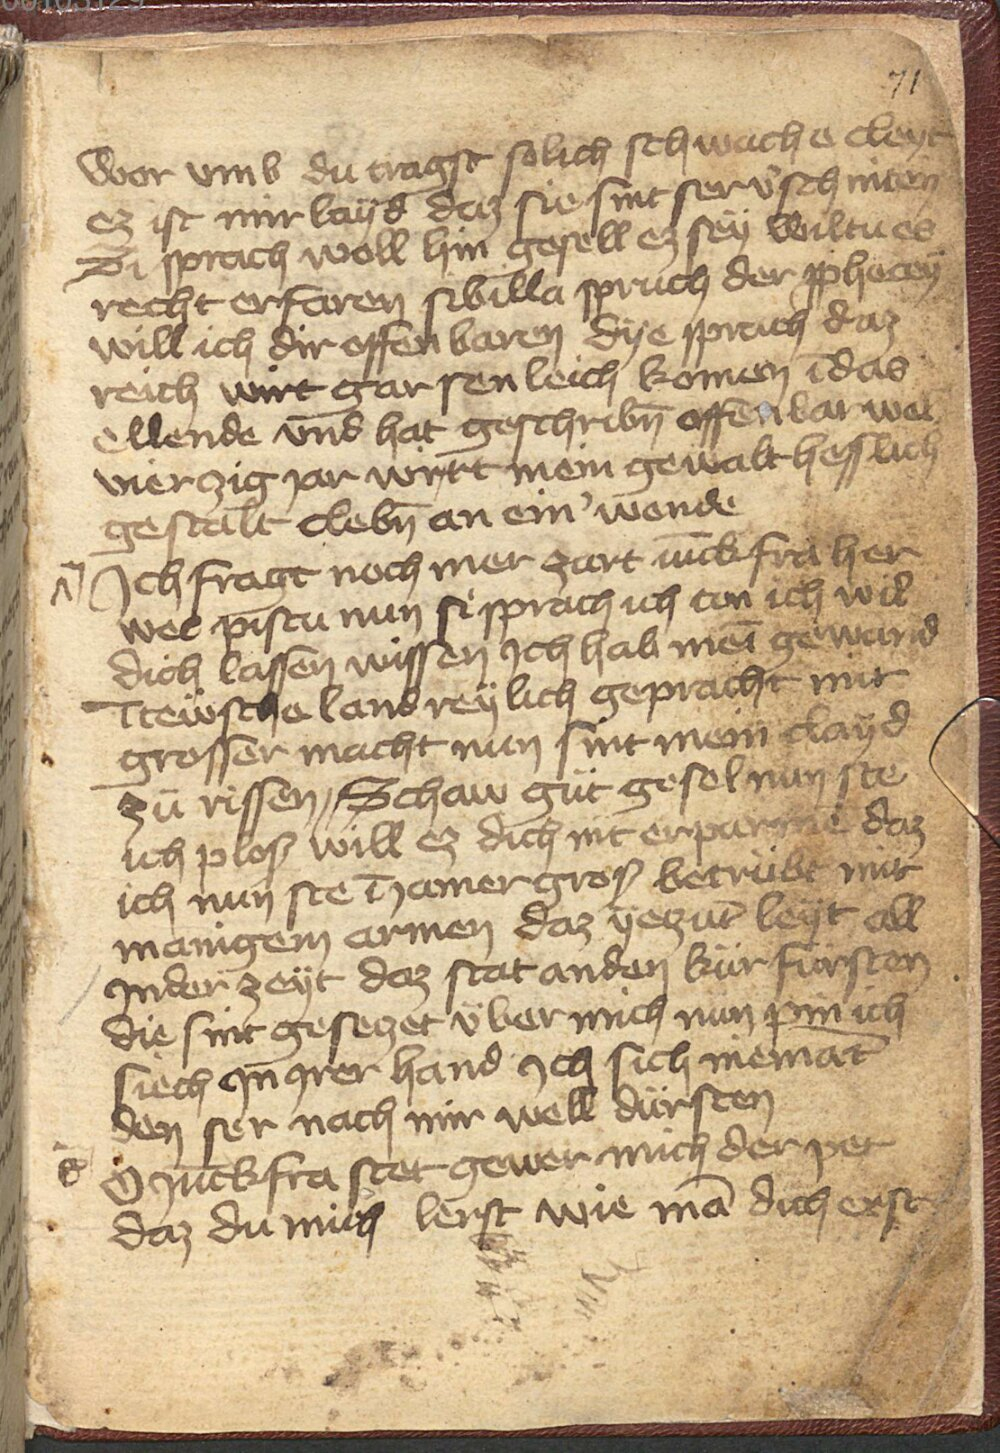 71
Wor vmb du tragst solich schwache cleyt
ez ist mir layd daz sie sint ser v̕schniten
Si sprach woll hin gesell ez sey Wiltu es
recht erfaren sibilla spruch der pphecey
will ich dir offen baren dye sprach daz
reich wirt gar senleich komen ī das
ellende vnd hat geschribn̄ offenbar wol
vierzig jar wirtt mein gewalt hesslich
gestalt clebn̄ an ein̕ wende
Ich fragt noch mer zart iūckfra her
wec pistu nun si sprach ich con ich wil
dich lassen wissen Ich hab meī gewand
ī tewsche land reylich gepracht mit
grosser macht nun sint mein clayd
zu rissen Schaw gut gesel nun ste
ich plosz will ez dich nit erparme daz
ich nun ste ī Jamer grosz betrubt mit
manigem armen daz yezūt leyt all
Inder zeyt daz stat anden kur fursten
die sint gesetzet vber mich nun pin ich
siech In Irer hand Ich sich niemāt
den ser nach mir well dursten
O Juckfra stet gewer mich der pet
daz du mich lerst wie mā dich erst